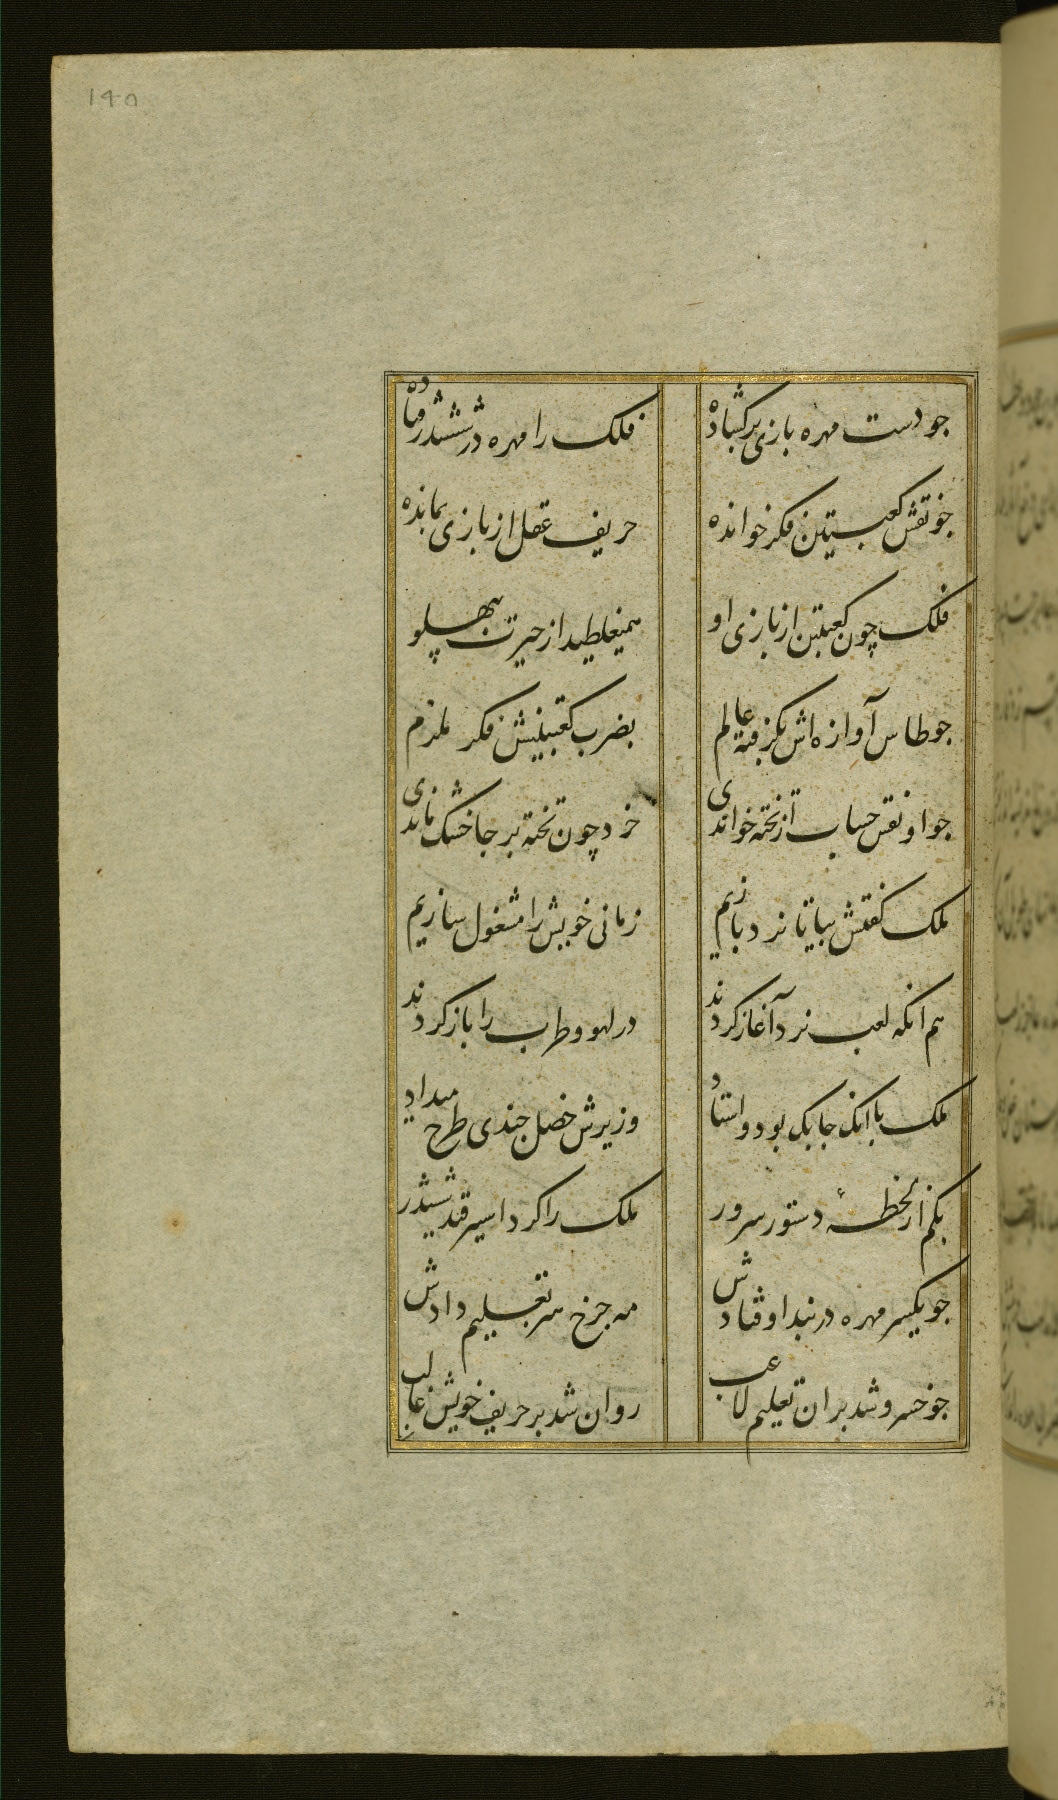 ۱۴۵
جو دست مهره بازی برکشاده
فلک را مهره در ششدر فتاده
جو نقش کعبتین فکر خوانده
حریف عقل از بازی بمانده
فلک چون کعبتین از بازی او
همیغلطید از حیرت بپهلو
جو طاس آوازه اش بگرفته عالم
بضرب کعبتینش فکر ملزم
جو او نقس حساب از تخته خواندی
خرد چون تخته بر جا خشک ماندی
ملک گفتش بیا تا نرد بازیم
زمانی خویش را مشغول سازیم
هم انکه لعب نرد آغاز کردند
در لهو و طرب را باز کردند
ملک با انک جابک بود و استاد
وزیرش خصل جندی طرح میداد
بکم از لحظهٔ دستور سرور
ملک را کرد اسیر قید ششدر
جو یکسر مهره در بند اوفتادش
مه جرخ سر تعلیم دادش
جو خسرو شد بران تعلیم لاعب
روان شد بر حریف خویش غالب